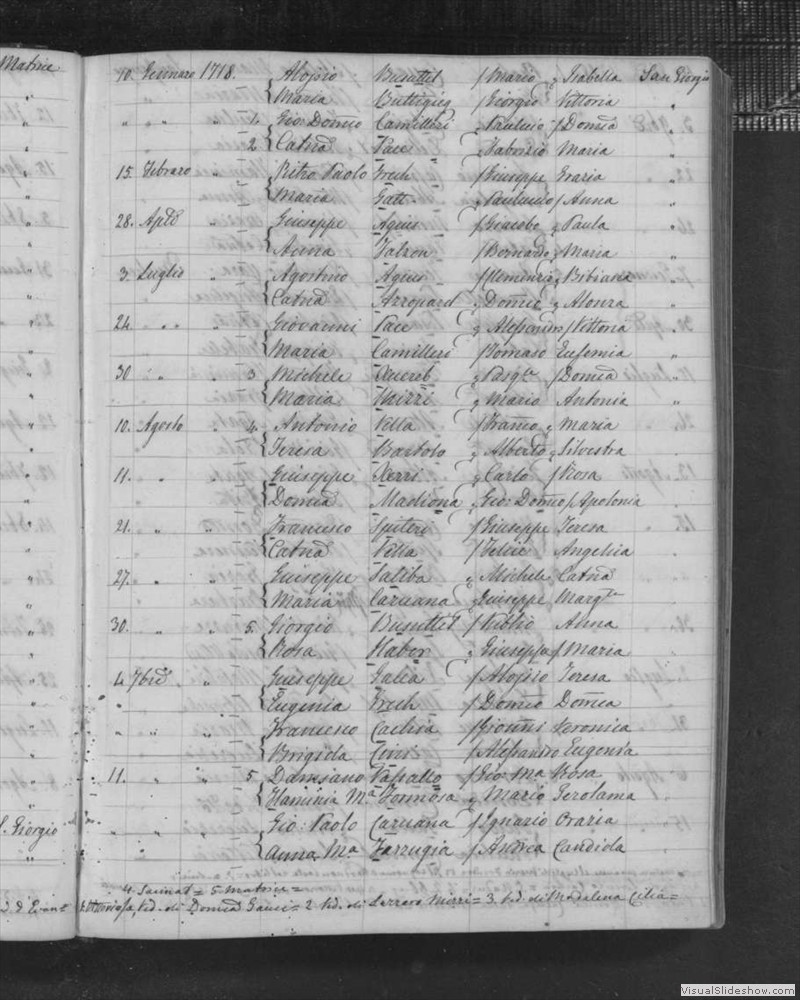 Matrice
10. Gennaro 1718. Aloisio Busuttil / Mario „ Isabella San Giorgio
Maria Buttigieg / Giorgio Vittoria „
„ „ 1. Gio: Domco Camilleri „ Pauluccio / Domca „
2 Catna Pace „ Fabrizio Maria „
15. Febraro „ Pietro Paolo Frech / Giuseppe Grazia „
Maria Gatt „ Pauluccio / Anna „
28. Aple „ Giuseppe Agius / Giacobo „ Paula „
Anna Falzon / Bernardo „ Maria „
3. Luglio „ Agostino Agius / Clemenzio „ Bibiana
Catna Azzopard „ Domco „ Alonza „
24. „ „ Giovanni Pace „ Alessandro / Vittoria „
Maria Camilleri / Tomaso Eufemia „
30 „ 3 Michele Xuereb „ Pasqle / Domca „
Maria „ Mario Antonia „
10. Agosto „ 4. Antonio Vella / Franco „ Maria
Teresa Bartolo „ Alberto „ Silvestra
11. „ „ Giuseppe Xerri „ Carlo / Rosa
Domca Madiona „ Gio: Domco / Apolonia
21. „ „ Francesco Spiteri / Giuseppe Teresa
Catna Vella / Felice Angelica
27. „ „ Giuseppe Saliba „ Michele Catna
Maria Caruana „ Giuseppe Margta
30. „ „ 5. Giorgio Busuttil / Publio Anna
Rosa Habor „ Giuseppe / Maria
4 7bre „ Giuseppe Galea / Aloisio Teresa
Eugenia Frech / Domco Domca
„ „ „ Francesco / Gionni Veronica
Brigida / Alessandro Eugenia
11. „ „ 5. Damiano Vassallo / Gio: Ma Rosa
Flaminia Ma Formosa „ Mario Gerolama
S. Giorgio „ „ „ Gio: Paolo Caruana / Ignazio Orazia
Anna Ma Zarrugia / Andrea Candida
4. = 5 Matrice =
Vittoriosa, Vid. di Domco Gauci = 2 Vid. di = 3. Vid. di Madalena Cilia =
VisualSlideshow.com